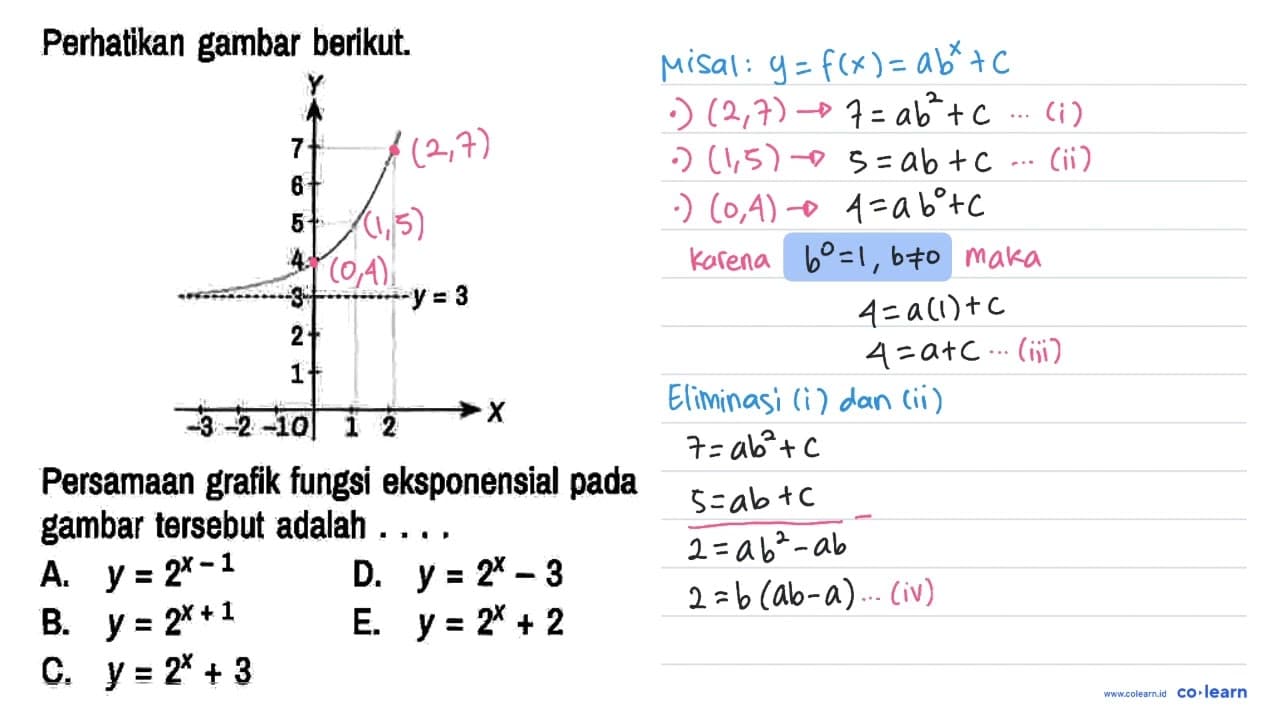 Perhatikan gambar berikut.
Y
7
6
5
4
3
2
1
(2,7)
(1,5)
(0,4)
y = 3
-3 -2 -1 0 1 2 X
Persamaan grafik fungsi eksponensial pada
gambar tersebut adalah . . . .
A. y = 2^(x – 1)
B. y = 2^(x + 1)
C. y = 2^x + 3
D. y = 2^x – 3
E. y = 2^x + 2
Misal: y = f(x) = ab^x + c
•) (2,7) → 7 = ab² + c ... (i)
•) (1,5) → 5 = ab + c ... (ii)
•) (0,4) → 4 = ab⁰ + c
Karena b⁰ = 1, b ≠ 0 maka
4 = a(1) + c
4 = a + c ... (iii)
Eliminasi (i) dan (ii)
7 = ab² + c
5 = ab + c –
2 = ab² – ab
2 = b (ab – a) ... (iv)
www.colearn.id co·learn